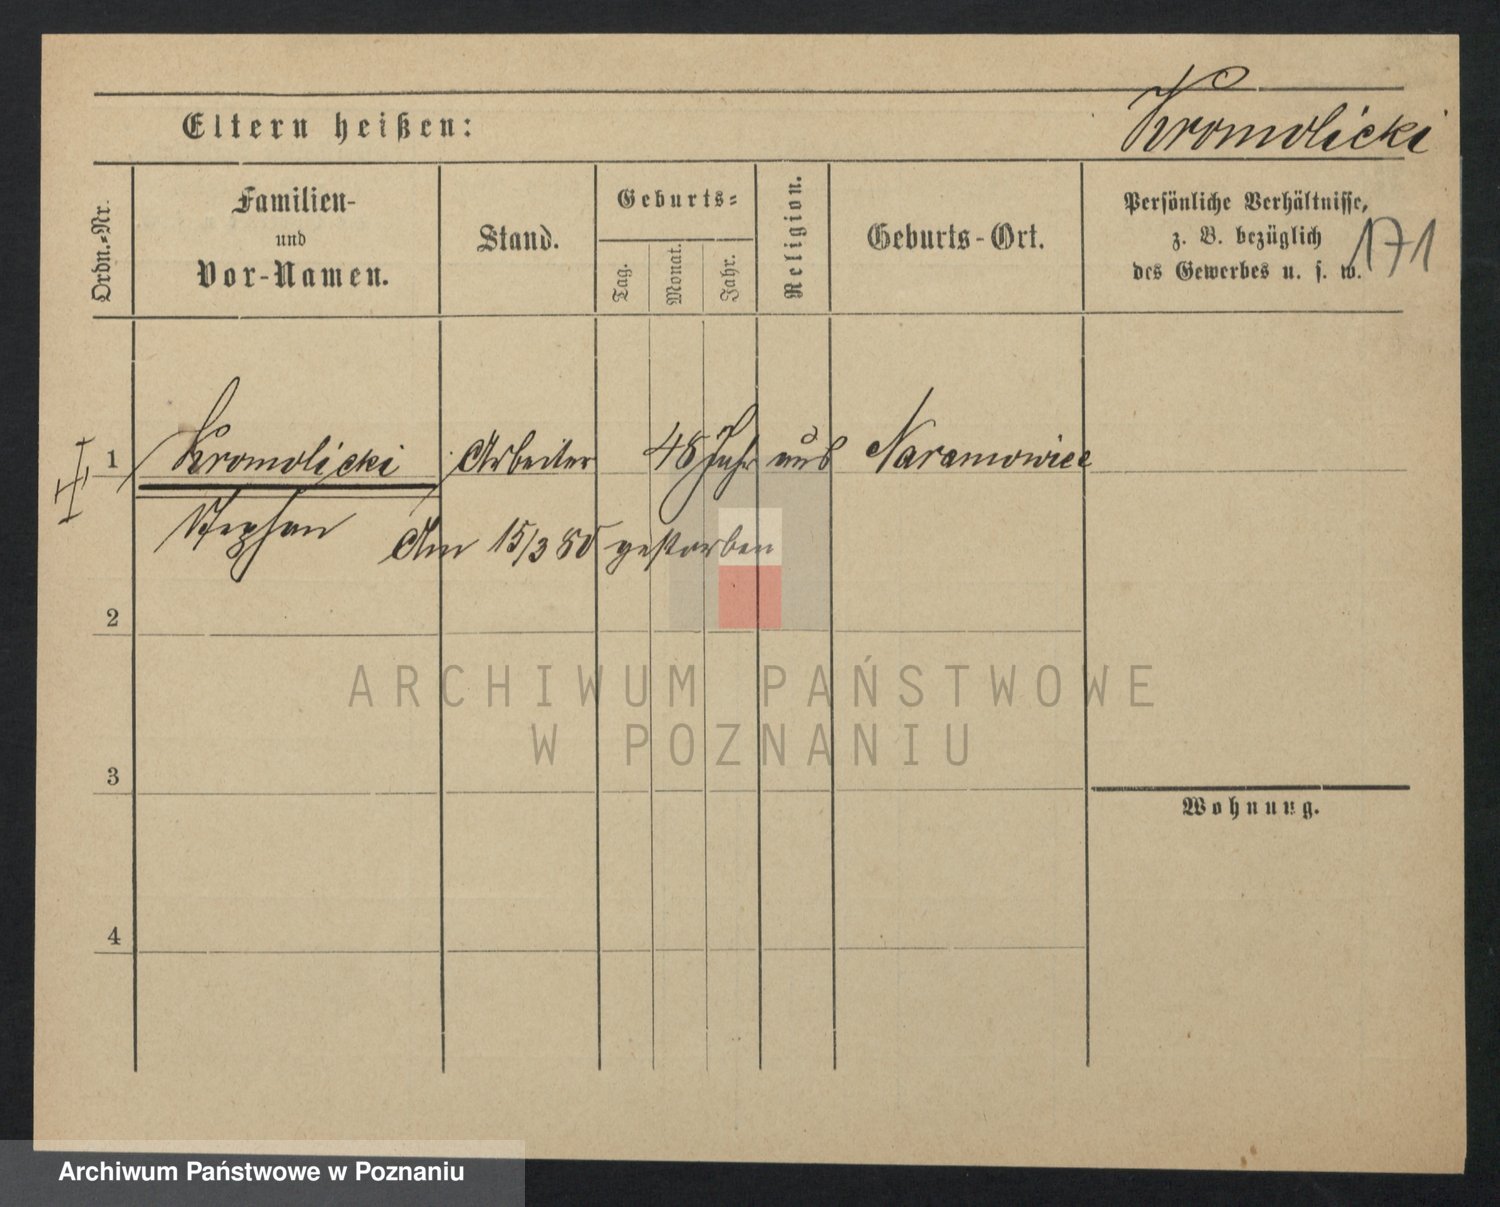 Eltern heißen:
Kromolicki
Ordn.-Nr.
Familien-
und
Vor-Namen.
Stand.
Geburts-
Tag.
Monat.
Jahr.
Religion.
Geburts-Ort.
Persönliche Verhältnisse,
z. B. bezüglich
des Gewerbes u. s. w.
171
1 Kromolicki Arbeiter 48 Jahr aus Naramowice
Stephan Am 15/3 80 gestorben
2
ARCHIWUM PAŃSTWOWE
W POZNANIU
3
Wohnung.
4
Archiwum Państwowe w Poznaniu